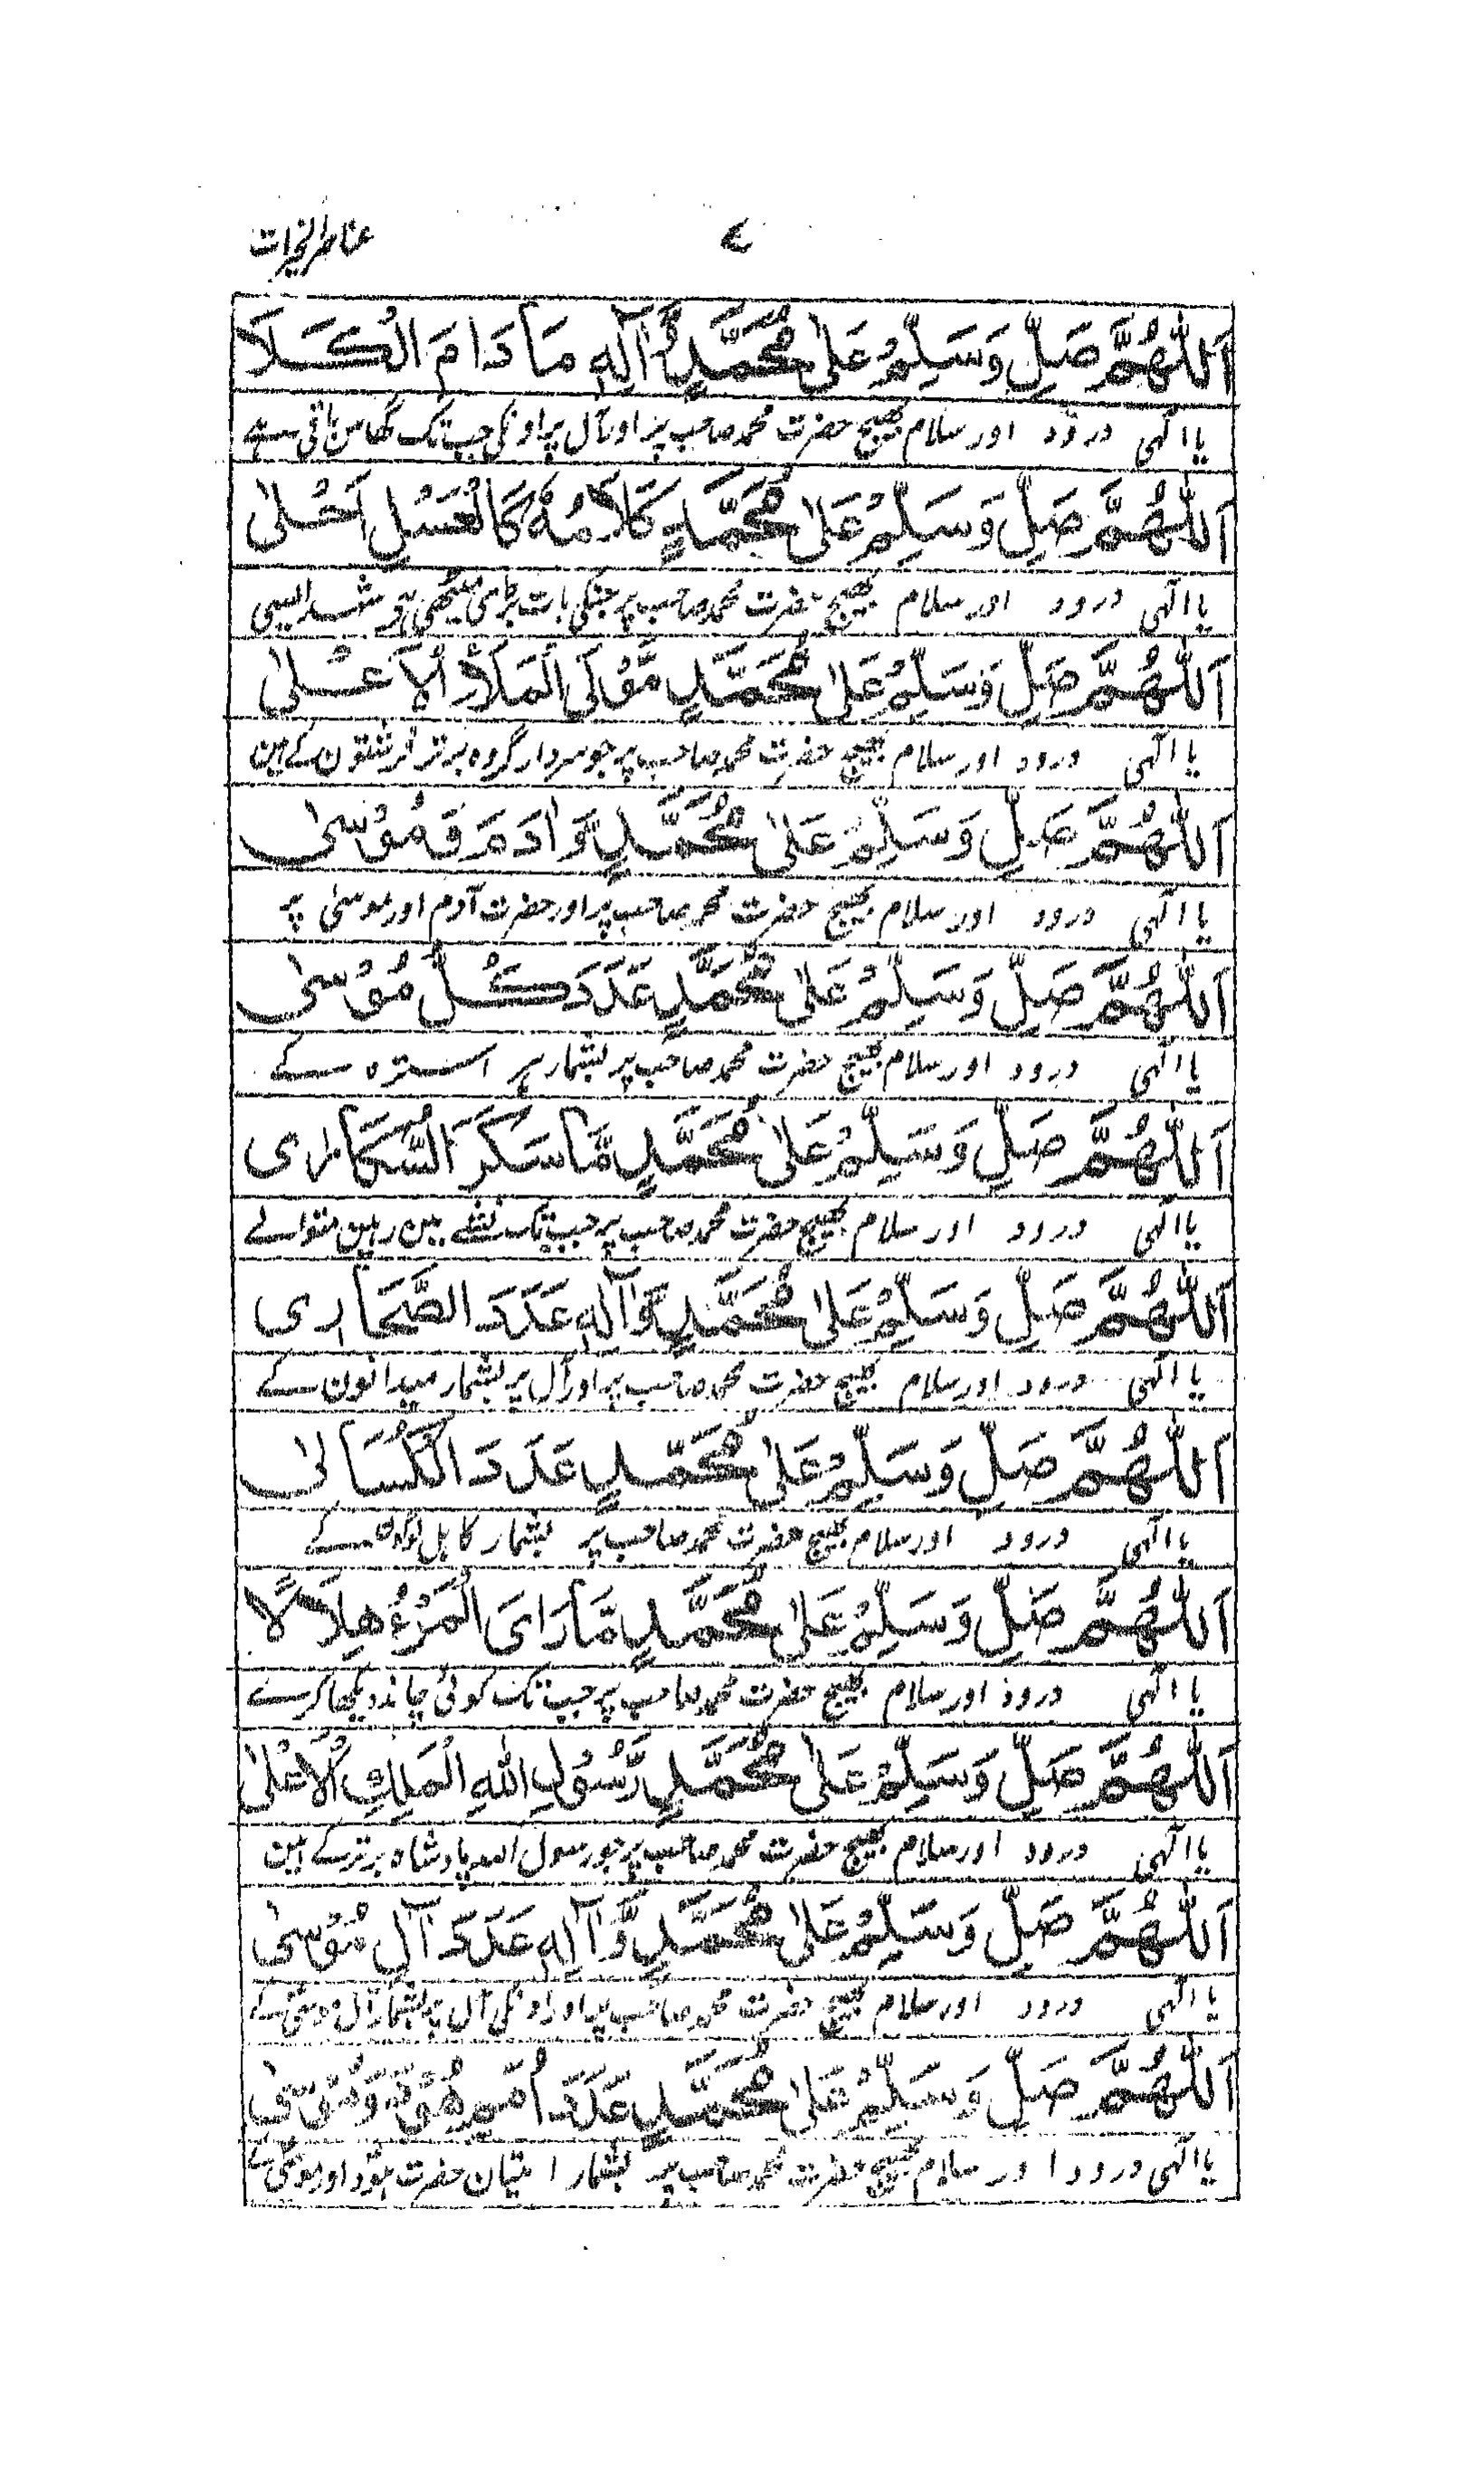 عناصر الخیرات
۷
اَللّٰهُمَّ صَلِّ وَسَلِّمْ عَلٰى مُحَمَّدٍ وَّاٰلِهٖ مَا دَامَ الْكَلَا
یا الٰہی درود اور سلام بھیج حضرت محمد صاحب پر اور آل پر اونکی جب تک گھاس باقی رہے
اَللّٰهُمَّ صَلِّ وَسَلِّمْ عَلٰى مُحَمَّدٍ كَلَامُهٗ كَالْعَسَلِ اَحْلٰى
یا الٰہی درود اور سلام بھیج حضرت محمد صاحب پر جنکی بات بڑی میٹھی ہے شہد ایسی
اَللّٰهُمَّ صَلِّ وَسَلِّمْ عَلٰى مُحَمَّدٍ مَّوْلَى الْمَلَاءِ الْاَعْلٰى
یا الٰہی درود اور سلام بھیج حضرت محمد صاحب پر جو سردار گروہ برتر فرشتون کے ہین
اَللّٰهُمَّ صَلِّ وَسَلِّمْ عَلٰى مُحَمَّدٍ وَّاٰدَمَ وَمُوْسٰى
یا الٰہی درود اور سلام بھیج حضرت محمد صاحب پر اور حضرت آدم اور موسیٰ پر
اَللّٰهُمَّ صَلِّ وَسَلِّمْ عَلٰى مُحَمَّدٍ عَدَدَ كُلِّ مُوْسٰى
یا الٰہی درود اور سلام بھیج حضرت محمد صاحب پر بشمار ہر استرہ کے
اَللّٰهُمَّ صَلِّ وَسَلِّمْ عَلٰى مُحَمَّدٍ مَّا سَكَرَ السُّكَارٰى
یا الٰہی درود اور سلام بھیج حضرت محمد صاحب پر جب تک نشے مین رہین متوالے
اَللّٰهُمَّ صَلِّ وَسَلِّمْ عَلٰى مُحَمَّدٍ وَّاٰلِهٖ عَدَدَ الصَّحَارِى
یا الٰہی درود اور سلام بھیج حضرت محمد صاحب پر اور آل پر بشمار میدانون کے
اَللّٰهُمَّ صَلِّ وَسَلِّمْ عَلٰى مُحَمَّدٍ عَدَدَ الْكُسَالٰى
یا الٰہی درود اور سلام بھیج حضرت محمد صاحب پر بشمار کاہل لوگون کے
اَللّٰهُمَّ صَلِّ وَسَلِّمْ عَلٰى مُحَمَّدٍ مَّا رَاَى الْمَرْءُ هِلَالًا
یا الٰہی درود اور سلام بھیج حضرت محمد صاحب پر جب تک کوئی چاند دیکھا کرے
اَللّٰهُمَّ صَلِّ وَسَلِّمْ عَلٰى مُحَمَّدٍ رَّسُوْلِ اللّٰهِ الْمَلِكِ الْاَعْلٰى
یا الٰہی درود اور سلام بھیج حضرت محمد صاحب پر جو رسول اللہ پادشاہ برتر کے ہین
اَللّٰهُمَّ صَلِّ وَسَلِّمْ عَلٰى مُحَمَّدٍ وَّاٰلِهٖ عَدَدَ اٰلِ مُوْسٰى
یا الٰہی درود اور سلام بھیج حضرت محمد صاحب پر اور اونکی آل پر بشمار آل موسیٰ کے
اَللّٰهُمَّ صَلِّ وَسَلِّمْ عَلٰى مُحَمَّدٍ عَدَدَ اُمَمِ هُوْدَ وَمُوْسٰى
یا الٰہی درود اور سلام بھیج حضرت محمد صاحب پر بشمار امتیان حضرت ہود اور موسیٰ کے